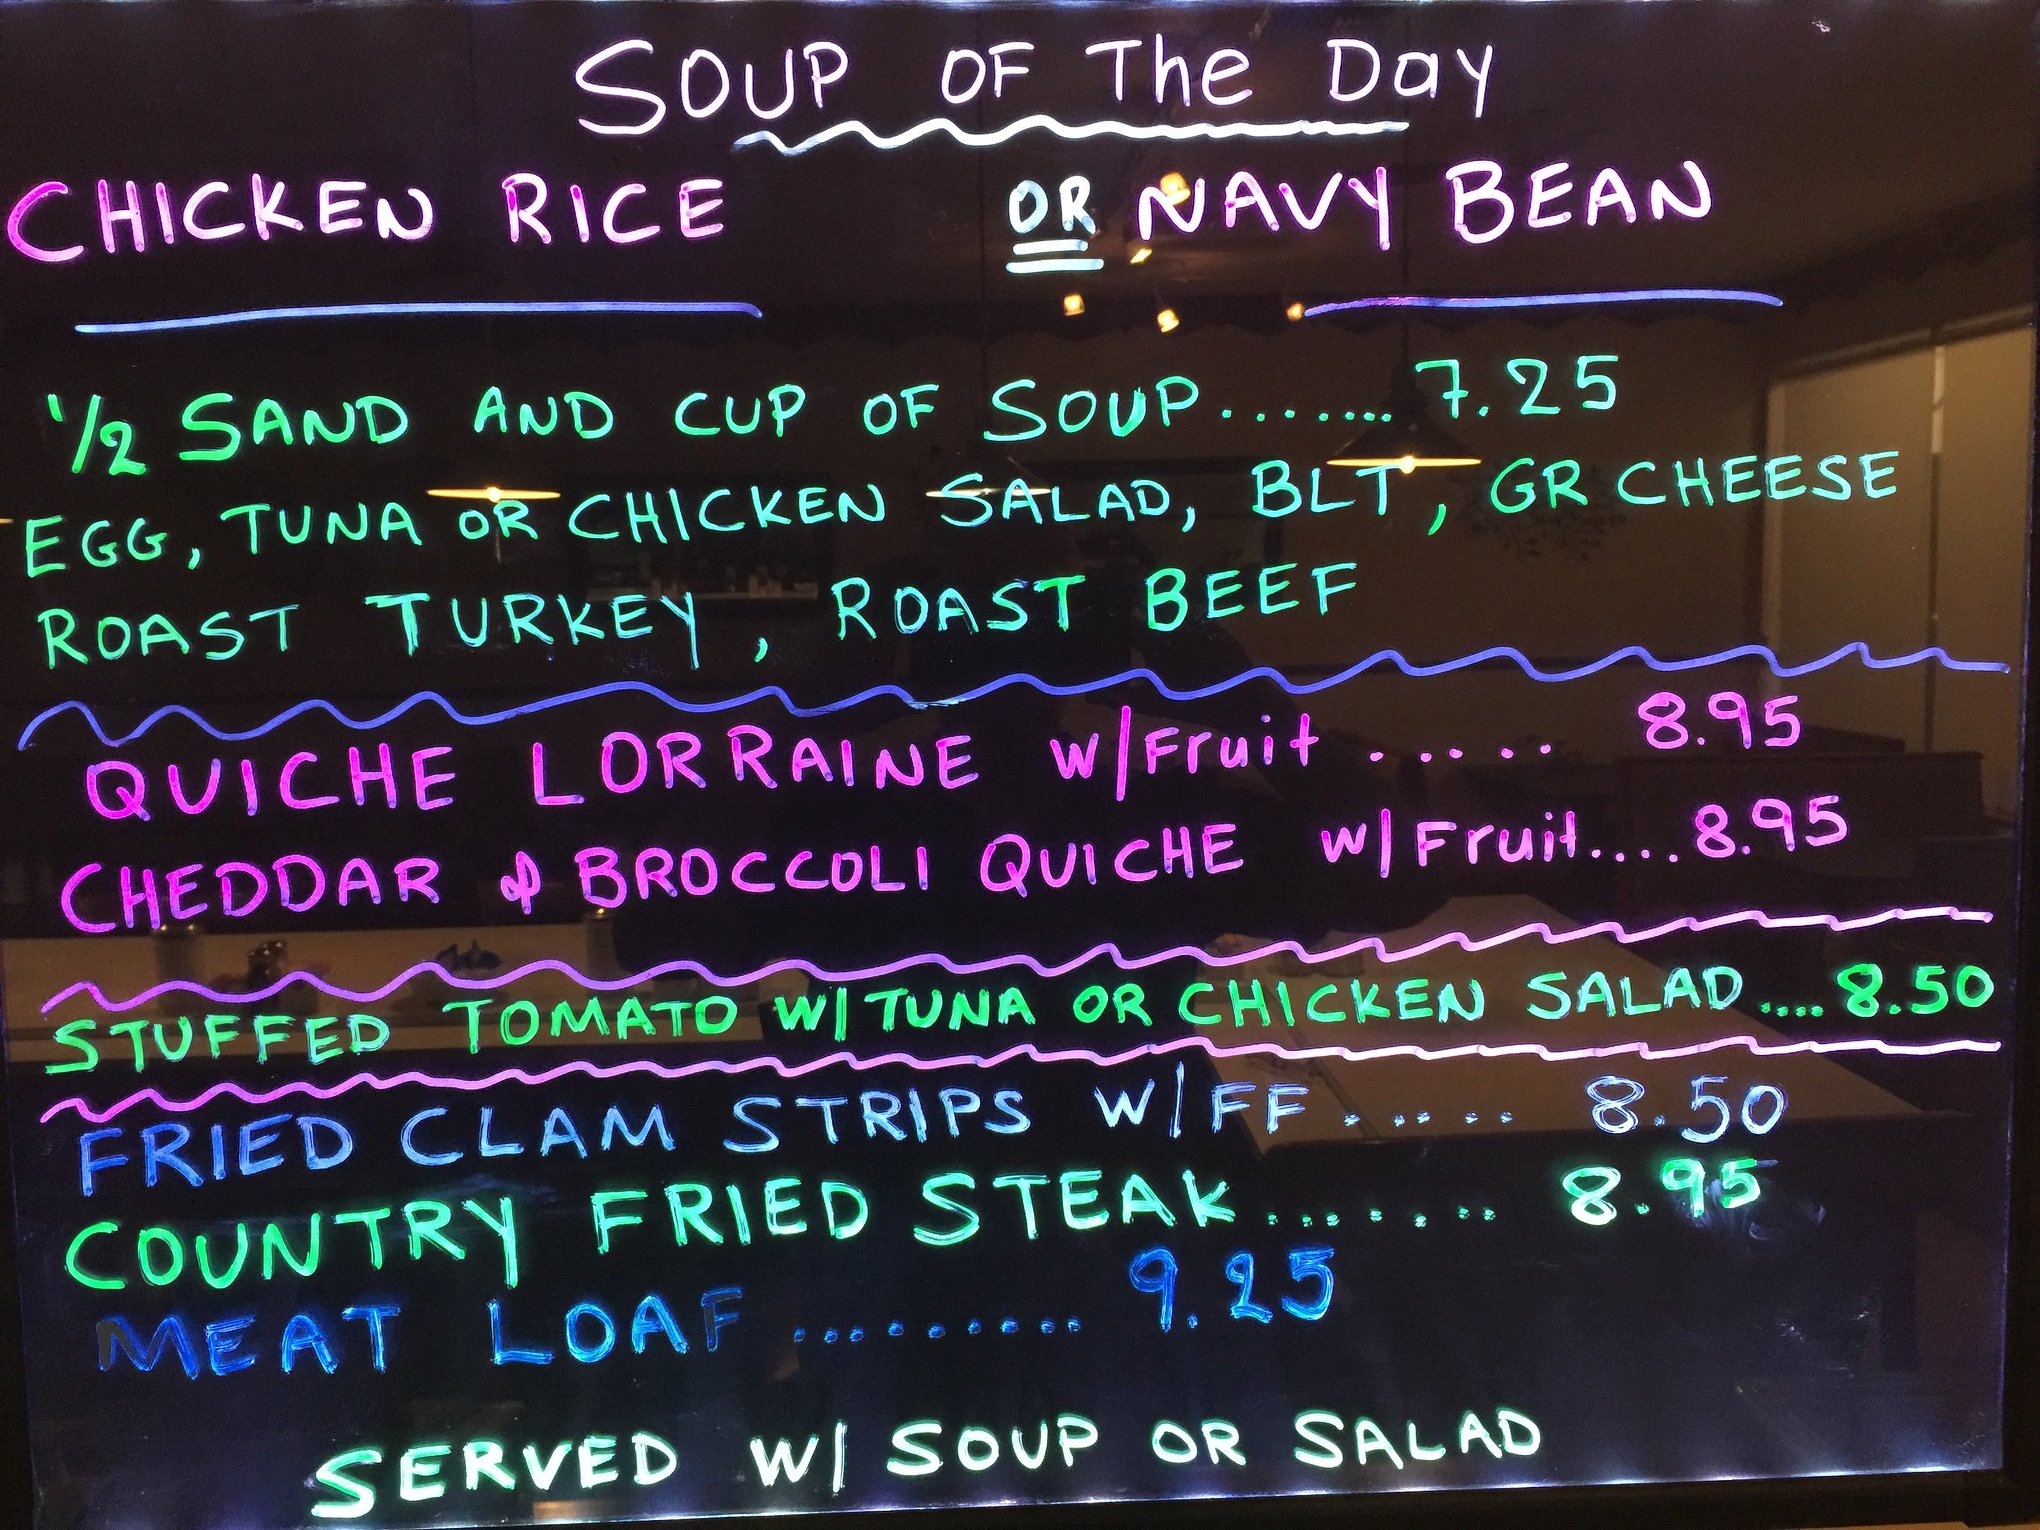 SOUP OF The Day
CHICKEN RICE OR NAVY BEAN
1/2 SAND AND CUP OF SOUP....... 7.25
EGG, TUNA OR CHICKEN SALAD, BLT, GR CHEESE
ROAST TURKEY, ROAST BEEF
QUICHE LORRAINE W/Fruit ..... 8.95
CHEDDAR & BROCCOLI QUICHE W/Fruit.... 8.95
STUFFED TOMATO W/TUNA OR CHICKEN SALAD .... 8.50
FRIED CLAM STRIPS W/FF ..... 8.50
COUNTRY FRIED STEAK....... 8.95
MEAT LOAF ......... 9.25
SERVED W/ SOUP OR SALAD